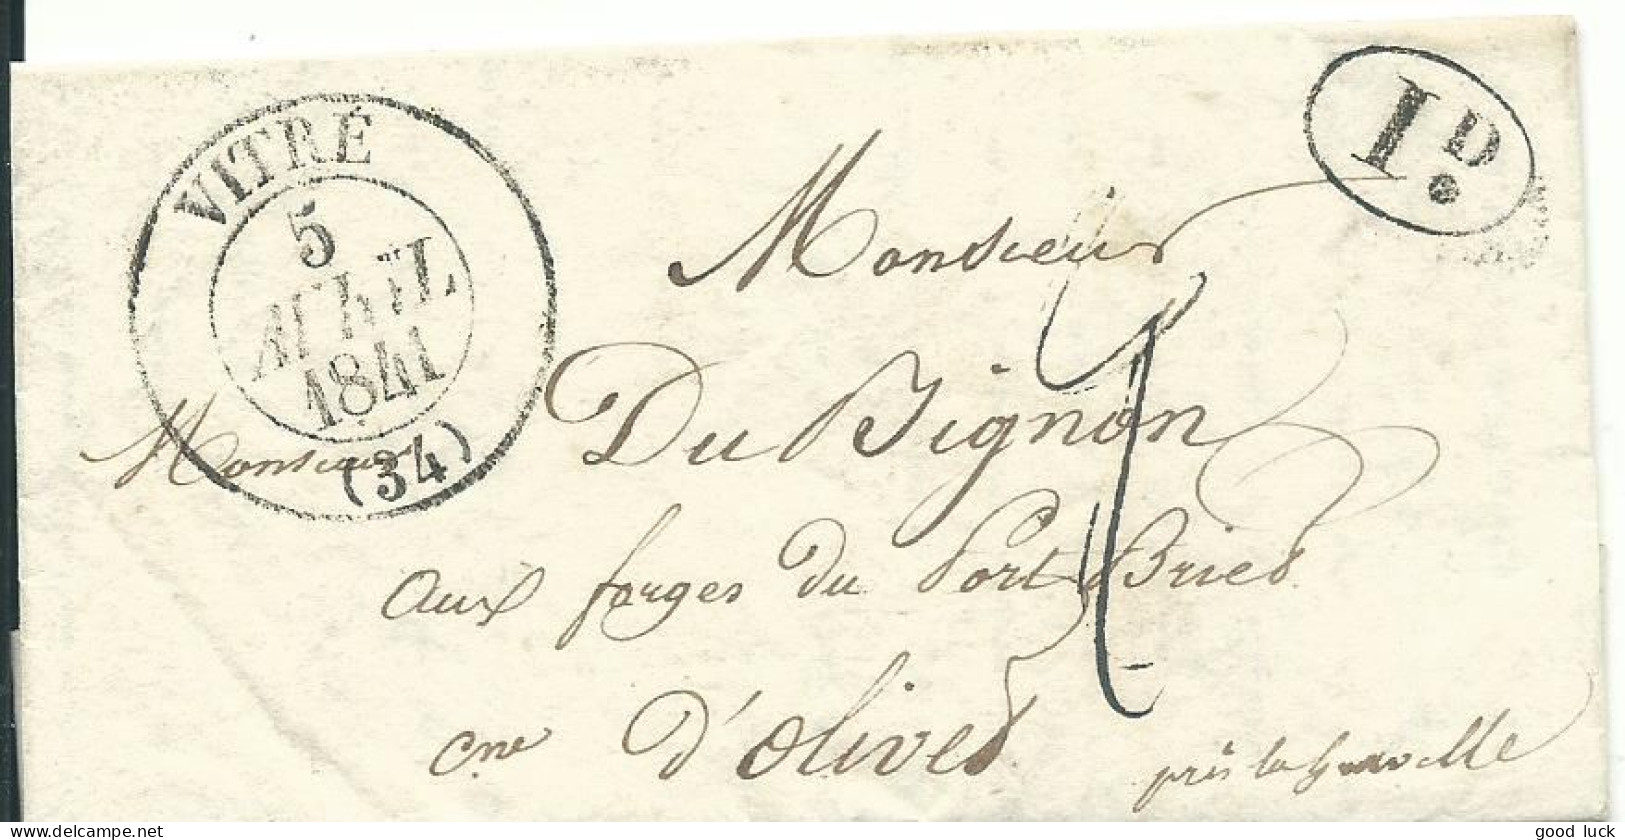 VITRÉ
5
AVRIL
1841
(34)
1 D.
Monsieur
Monsieur
Du Bignon
aux forges du Port Bried
cne d'olived
près la gravelle
delcampe.net
good luck